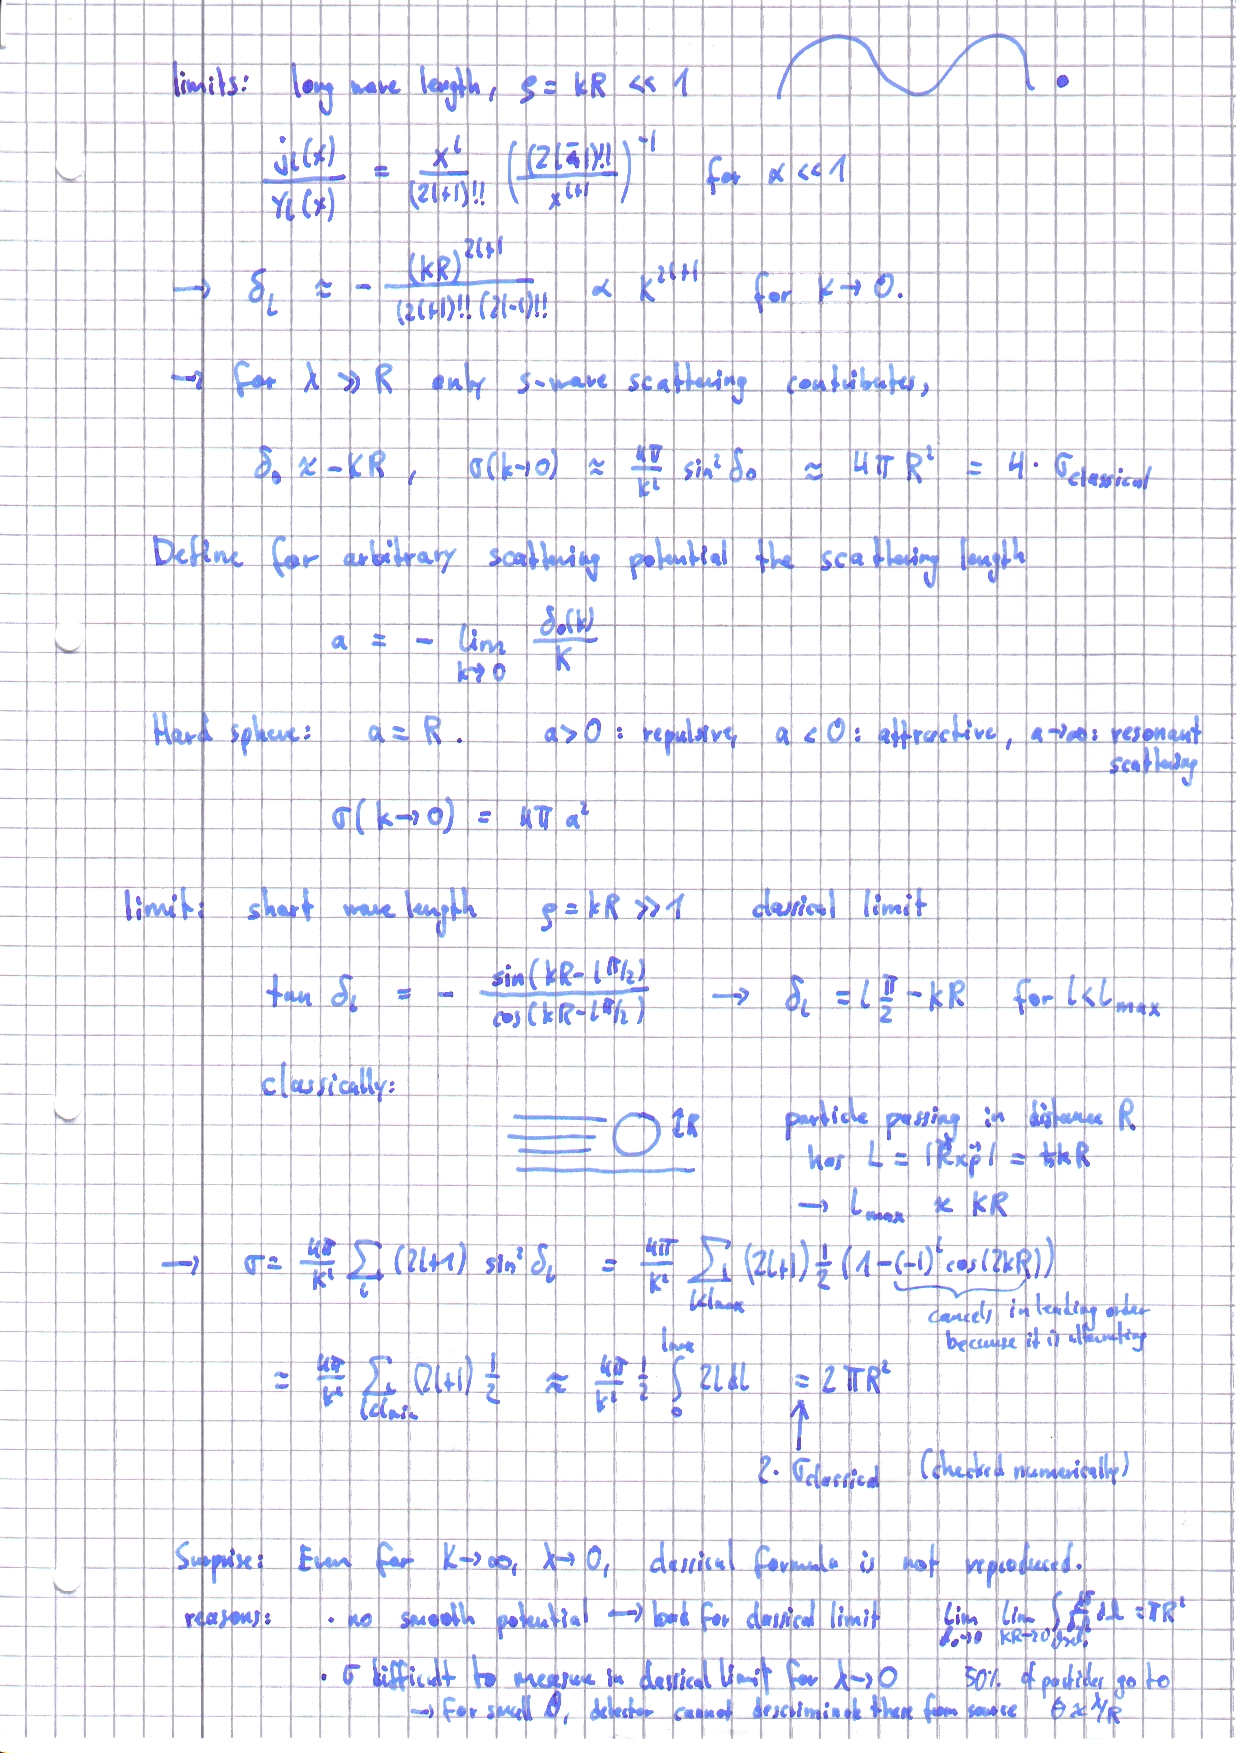 limits: long wave length, ρ = kR << 1
j_l(x) / Y_l(x) = x^l / (2l+1)!! ((2l-1)!! / x^{l+1})^{-1} for x << 1
→ δ_l ≈ - (kR)^{2l+1} / (2l+1)!! (2l-1)!! ∝ k^{2l+1} for k → 0.
→ for λ >> R only s-wave scattering contributes,
δ_0 ≈ -kR, σ(k→0) ≈ 4π/k² sin² δ_0 ≈ 4π R² = 4 · σ_classical
Define for arbitrary scattering potential the scattering length
a = - lim_{k→0} δ_0(k) / k
Hard sphere: a = R. a>0: repulsive, a<0: attractive, a→∞: resonant
scattering
σ(k→0) = 4π a²
limit: short wave length ρ = kR >> 1 classical limit
tan δ_l = - sin(kR - lπ/2) / cos(kR - lπ/2) → δ_l = l π/2 - kR for l<l_max
classically:
↕R particle passing in distance R
has L = |R⃗×p⃗| = ħkR
→ l_max ≈ kR
→ σ = 4π/k² Σ_l (2l+1) sin² δ_l = 4π/k² Σ_{l<l_max} (2l+1) 1/2 (1-(-1)^l cos(2kR))
cancels in leading order
because it is alternating
= 4π/k² Σ_{l<l_min} (2l+1) 1/2 ≈ 4π/k² 1/2 ∫_0^{l_max} 2l dl = 2πR²
2 · σ_classical (checked numerically)
Surprise: Even for k→∞, λ→0, classical formula is not reproduced.
reasons: · no smooth potential → bad for classical limit lim lim ∫ dσ/dΩ dΩ = πR²
· σ difficult to measure in classical limit for λ→0 50% of particles go to
→ for small θ, detector cannot descriminate there from source θ ≈ λ/R